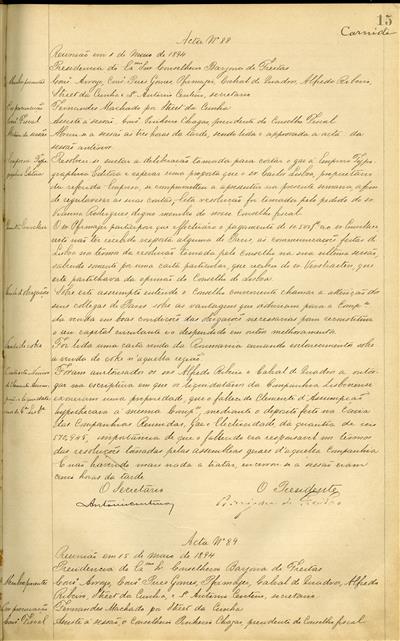 15
Carnide
Acta Nº 88
Reunião em 1 de Março de 1894
Presidencia do Exmo Snr Conselheiro Barjona de Freitas
Membros presentes
Arroyo, Pires Gomes, Cabral de Quadros, Alfredo Ribeiro,
Street da Cunha e Sto Antonio Centeno, secretario
Por procuração
Fernandes Machado por Street da Cunha
Conselho Fiscal
Assiste a sessão, Pinheiro Chagas, presidente do Conselho Fiscal
Abriu-se a sessão ás tres horas da tarde, sendo lida e approvada a acta da
sessão anterior
Resolveu-se sustar a deliberação tomada para cortar o gaz á Empreza Typo-
graphica Editora e esperar uma proposta que o sr Lisboa, proprietario
da referida Empreza, se comprometteu a apresentar na presente semana, afim
de regularisar as suas contas. Esta resolução foi tomada pelo pedido do sr
Rodrigues digno membro do nosso Conselho fiscal
participou que o pagamento de
ter recebido resposta alguma de Paris, as communicações feitas de
Lisboa no termo da resolução tomada pelo Conselho na sua ultima sessão,
sabendo somente por uma carta particular, que recebeu do sr que
este partilhava da opinião do Conselho de Lisboa.
Sobre este assumpto entende o Conselho conveniente chamar a attenção dos
seus collegas de Paris sobre as vantagens que adviriam para a Compª
da venda em boas condições das obrigações necessarias para reconstituir
o seu capital circulante e o despendido em outros melhoramentos.
Venda de coke
Foi lida uma carta vinda da Roumania enviando esclarecimentos sobre
a venda de coke n'aquella região.
Foram auctorisados os srs Alfredo Ribeiro e Cabral de Quadros a outor-
gar na escriptura em que os liquidatarios da Companhia Lisbonense
exoneram uma propriedade, que o fallecido Clemente d'Assumpção
hypothecara á mesma Compª, mediante o deposito feito na caixa
das Companhias Reunidas, Gaz e Electricidade da quantia de reis
570,945, importancia de que o fallecido era responsavel em termos
das resoluções tomadas pelas assembleas geraes d'aquella Companhia
E não havendo mais nada a tratar, encerrou-se a sessão eram
cinco horas da tarde
O Secretario O Presidente
Acta Nº 89
Reunião em 15 de Março de 1894
Presidencia do Exmo Sr Conselheiro Barjona de Freitas
Membros presentes
Arroyo, Pires Gomes, Cabral de Quadros, Alfredo
Ribeiro, Street da Cunha, e Sto Antonio Centeno, secretario
Por procuração
Fernandes Machado por Street da Cunha
Conselho Fiscal
Assiste a sessão, o Conselheiro Pinheiro Chagas, presidente do Conselho fiscal